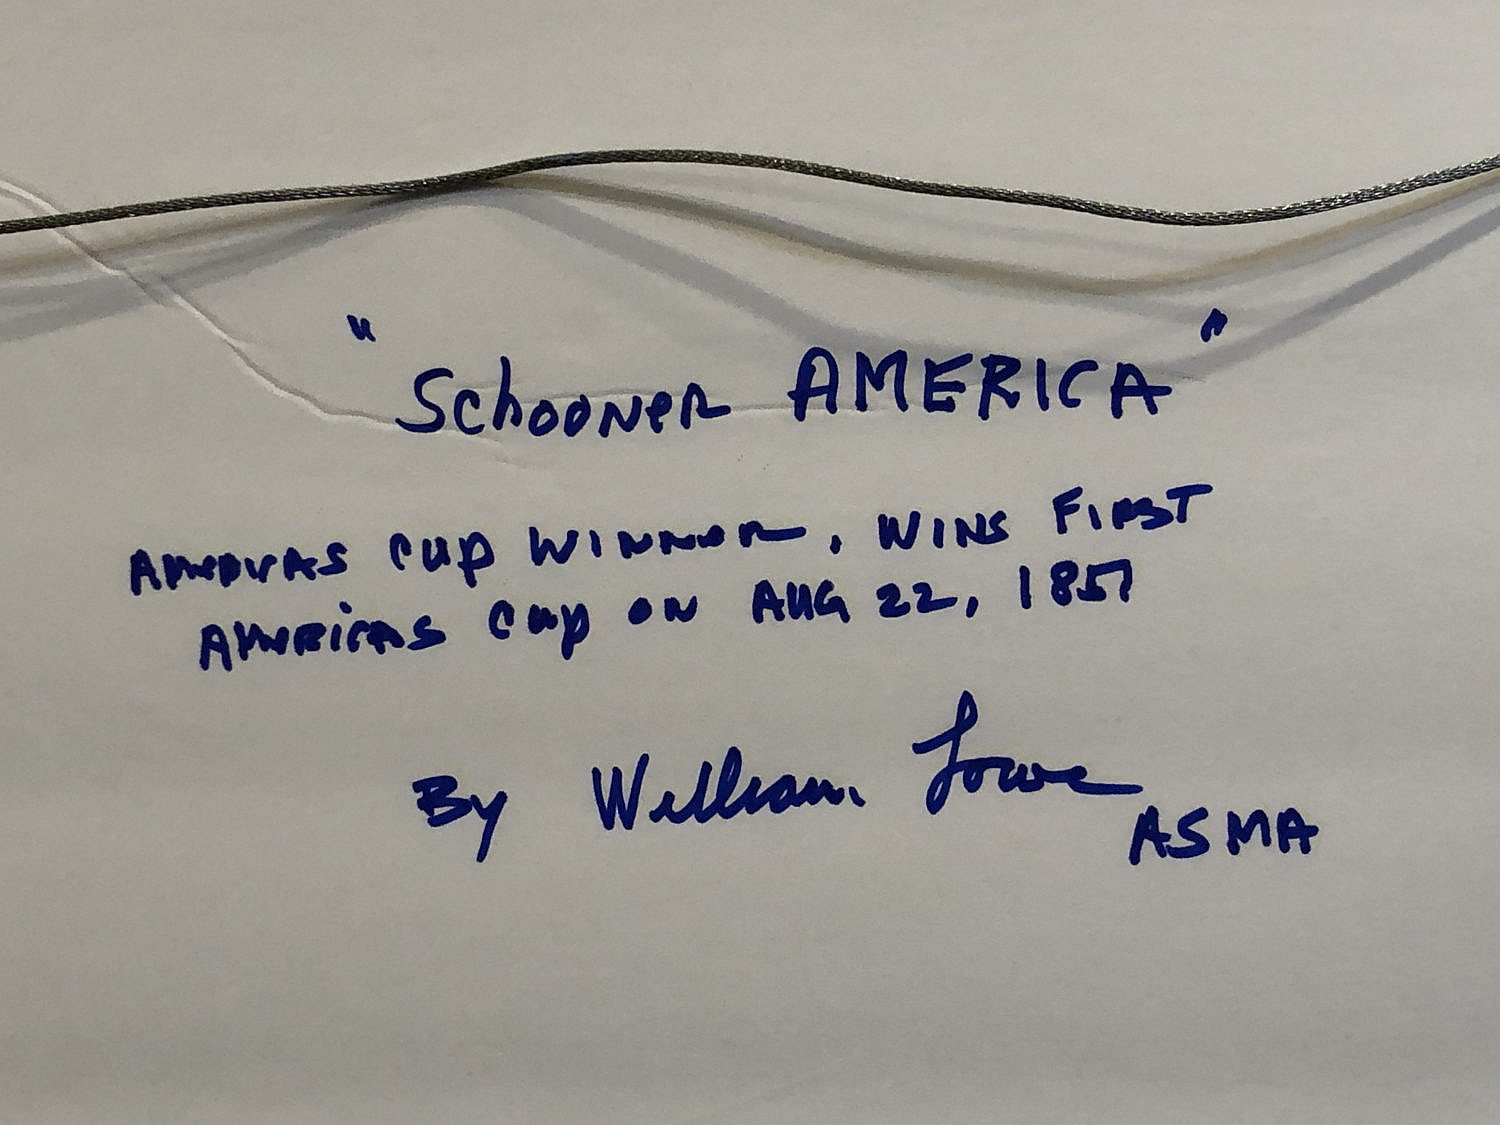 "Schooner AMERICA"
AMERICAS CUP WINNER, WINS FIRST
AMERICAS CUP ON AUG 22, 1851
By William Lowe
ASMA